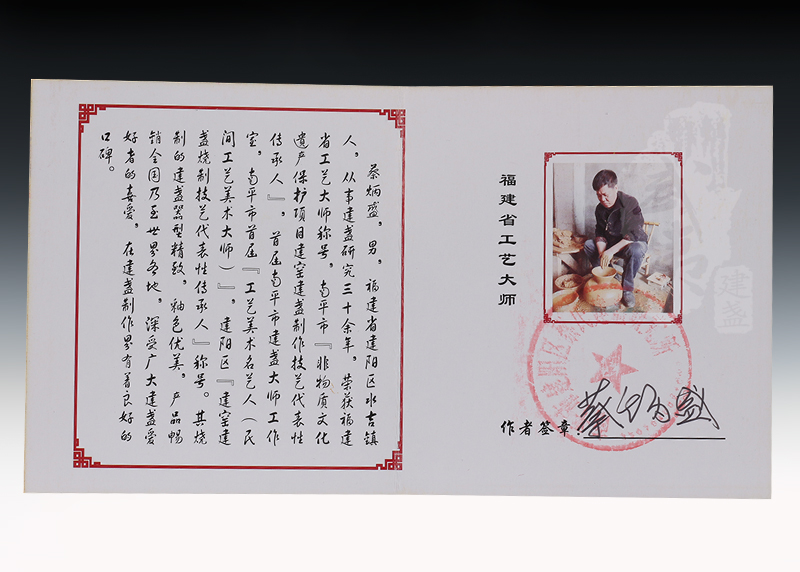 蔡炳盛，男，福建省建阳区水吉镇
人，从事建盏研究三十余年，荣获福建
省工艺大师称号，南平市『非物质文化
遗产保护项目建窑建盏制作技艺代表性
传承人』，首届南平市建盏大师工作
室，南平市首届『工艺美术名艺人（民
间工艺美术大师）』，建阳区『建窑建
盏烧制技艺代表性传承人』称号。其烧
制的建盏器型精致，釉色优美，产品畅
销全国乃至世界各地，深受广大建盏爱
好者的喜爱，在建盏制作界有着良好的
口碑。
福建省工艺大师
作者签章：蔡炳盛
建盏